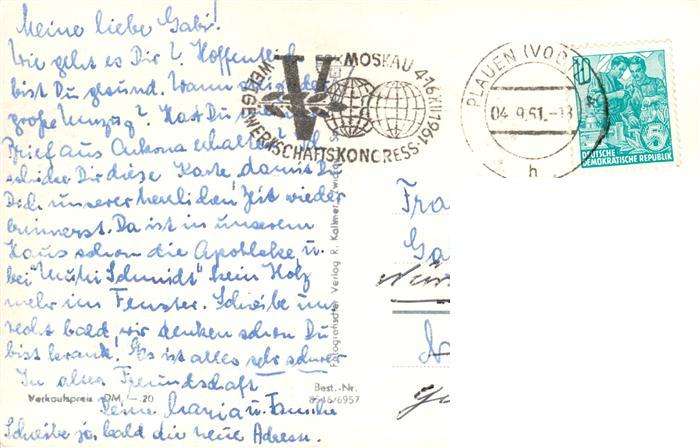 Meine liebe Gabi!
Wie geht es Dir? Hoffentlich
bist Du gesund. Wann
große Umzug? Hast Du
Brief aus Ankona erhalten?
schicke Dir diese Karte, damit Du
Dich unserer herrlichen Zeit wieder
erinnerst. Da ist in unserem
Haus schon die Apotheke u.
bei "Mutti Schmidt" kein Holz
mehr im Fenster. Schreibe uns
recht bald, wir denken schon Du
bist krank. Es ist alles sehr schwer
In alter Freundschaft
Deine Maria u. Familie
Schreibe ja bald die neue Adresse.
Verkaufspreis DM -.20
Best.-Nr.
6546/6957
V
MOSKAU 4-16.XII.1961
V. WELTGEWERKSCHAFTSKONGRESS
PLAUEN (VOGTL
04.9.61.-18
h
10
5
DEUTSCHE
DEMOKRATISCHE REPUBLIK
Fra
Ga